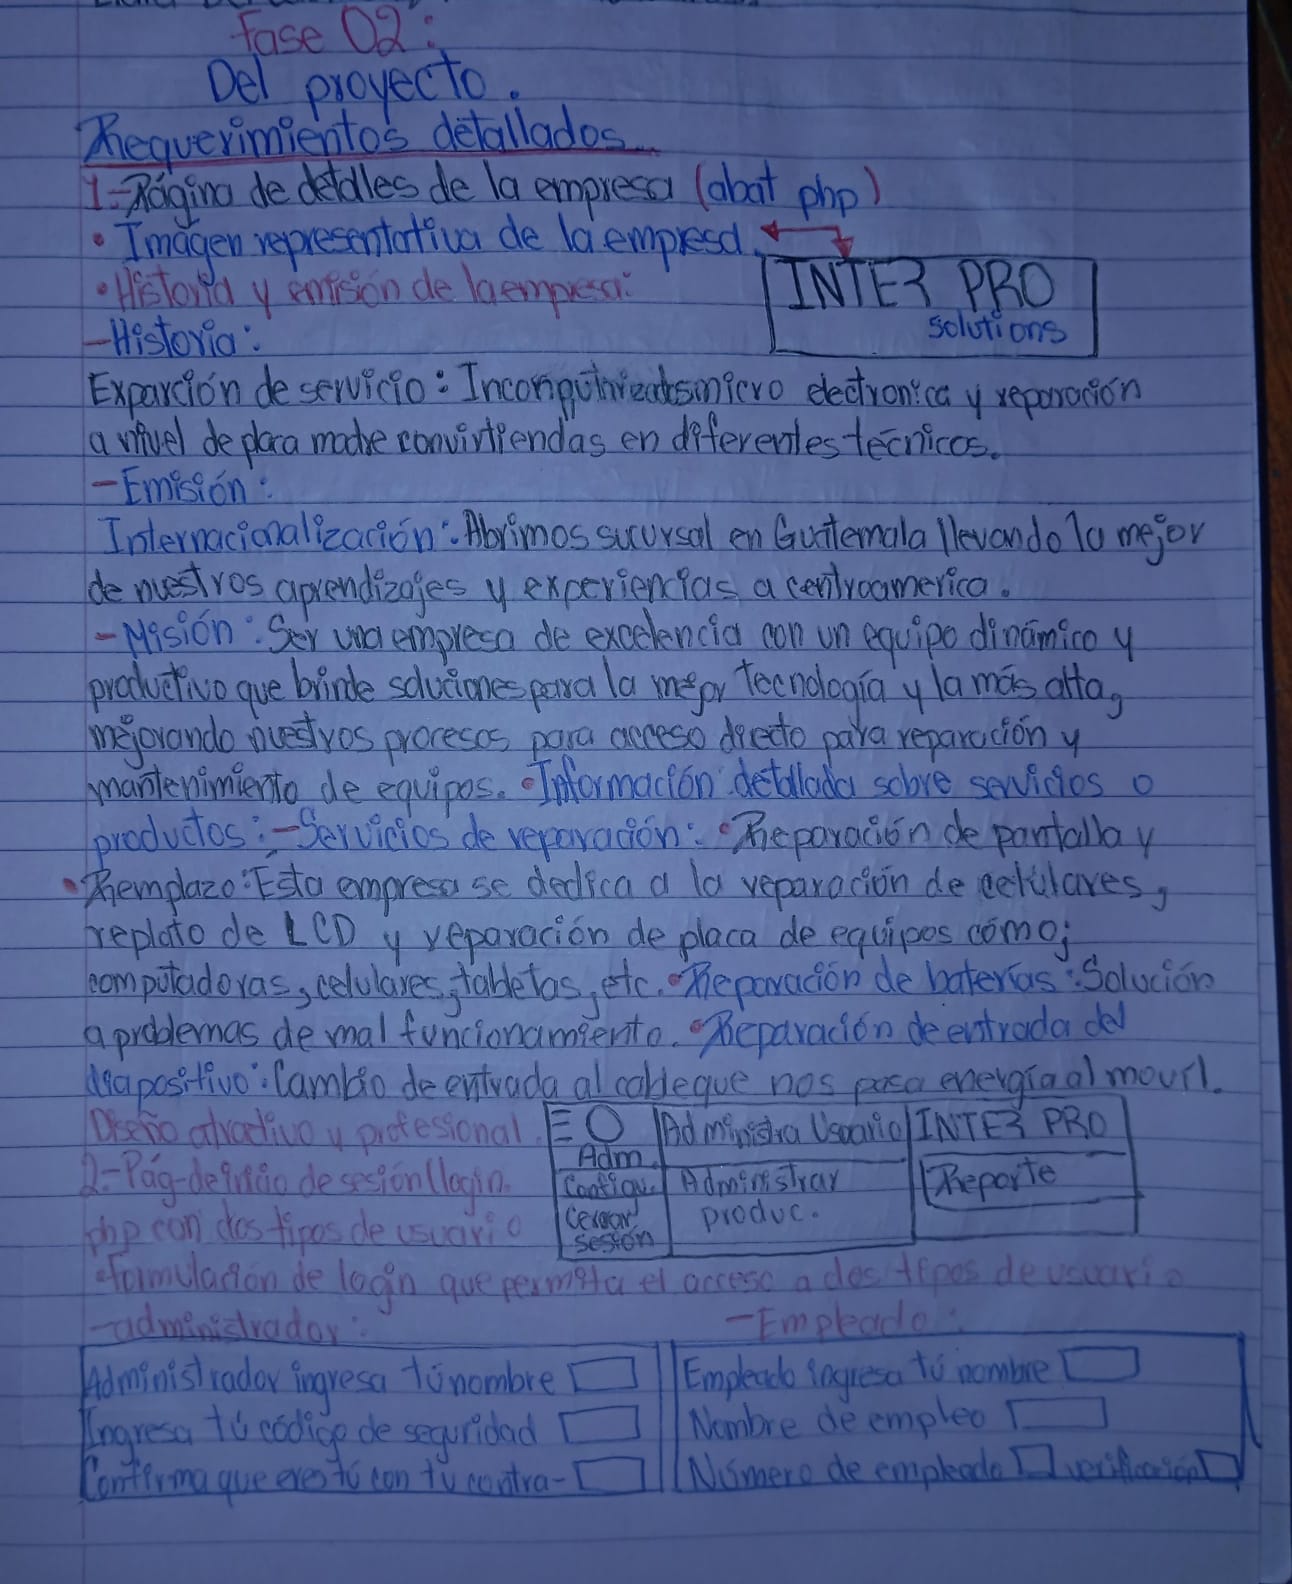 Fase 02:
Del proyecto.
Requerimientos detallados.
1.- Página de detalles de la empresa (abat php)
• Imágen representativa de la empresa.
• Historia y emisión de la empresa:
INTER PRO
solutions
- Historia:
Exparción de servicio: micro electronica y reparación
a nivel de placa madre convirtiendas en diferentes técnicos.
- Emisión:
Internacionalización: Abrimos sucursal en Guatemala llevando lo mejor
de nuestros aprendizajes y experiencias a centroamerica.
- Misión: Ser una empresa de excelencia con un equipo dinámico y
productivo que brinde soluciones para la mejor tecnología y la más alta,
mejorando nuestros procesos para acceso directo para reparación y
mantenimiento de equipos. • Información detallada sobre servicios o
productos: - Servicios de reparación: • Reparación de pantalla y
• Remplazo: Esta empresa se dedica a la reparación de celulares,
de LCD y reparación de placa de equipos cómo;
computadoras, celulares, tabletas, etc. • Reparación de baterías: Solución
a problemas de mal funcionamiento. • Reparación de entrada del
diapositivo: Cambio de entrada al cable que nos pasa energía al movil.
Diseño atractivo y profesional.
2.- Pág- de inicio de sesión (login.
php con dos tipos de usuario
Adm.
Configu.
Cerrar
sesión
Administra Usuario
Administrar
produc.
INTER PRO
Reporte
• formulación de login que permita el acceso a dos tipos de usuario
- administrador:
Administrador ingresa tú nombre
Ingresa tú código de seguridad
Confirma que eres tú con tu contra-
- Empleado:
Empleado ingresa tú nombre
Nombre de empleo
Número de empleado verificación